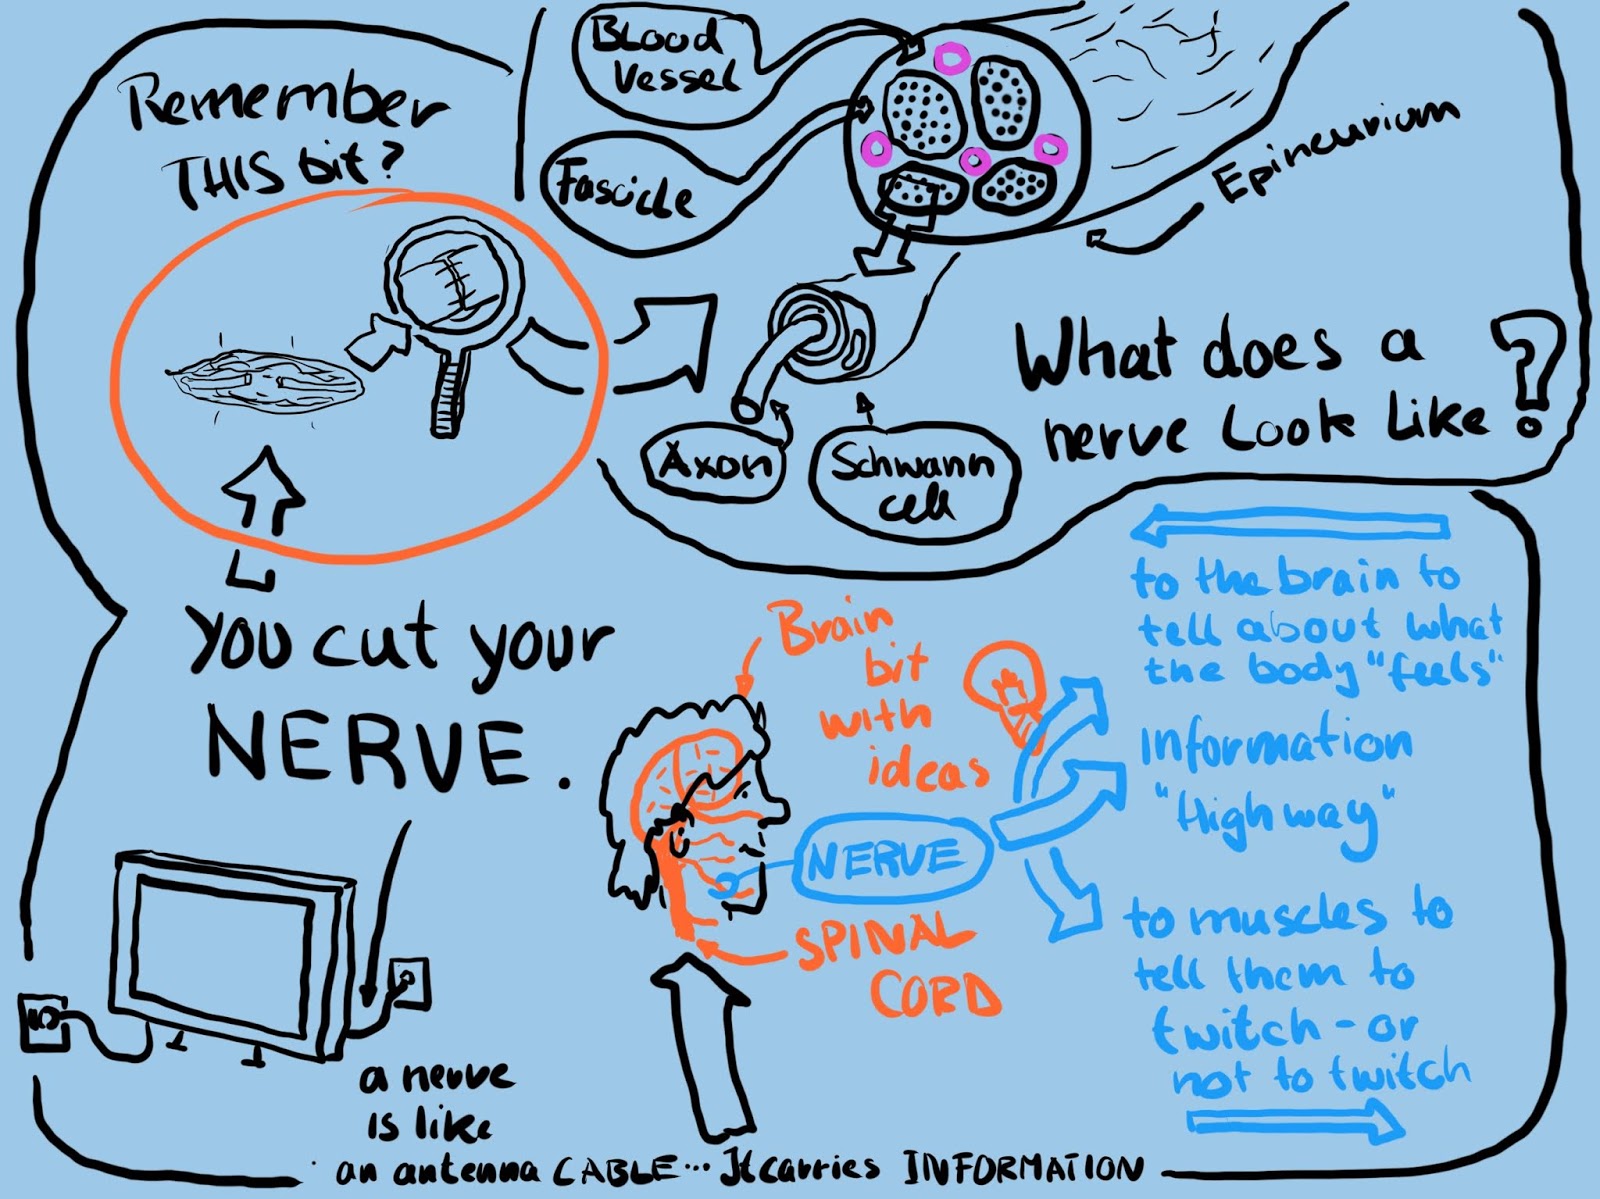 Remember
THIS bit?
Blood
Vessel
Fascicle
Epineurium
Axon
Schwann
cell
What does a
nerve Look Like?
You cut your
NERVE.
a nerve
is like
an antenna CABLE... It carries INFORMATION
Brain
bit
with
ideas
NERVE
SPINAL
CORD
to the brain to
tell about what
the body "feels"
Information
"Highway"
to muscles to
tell them to
twitch - or
not to twitch